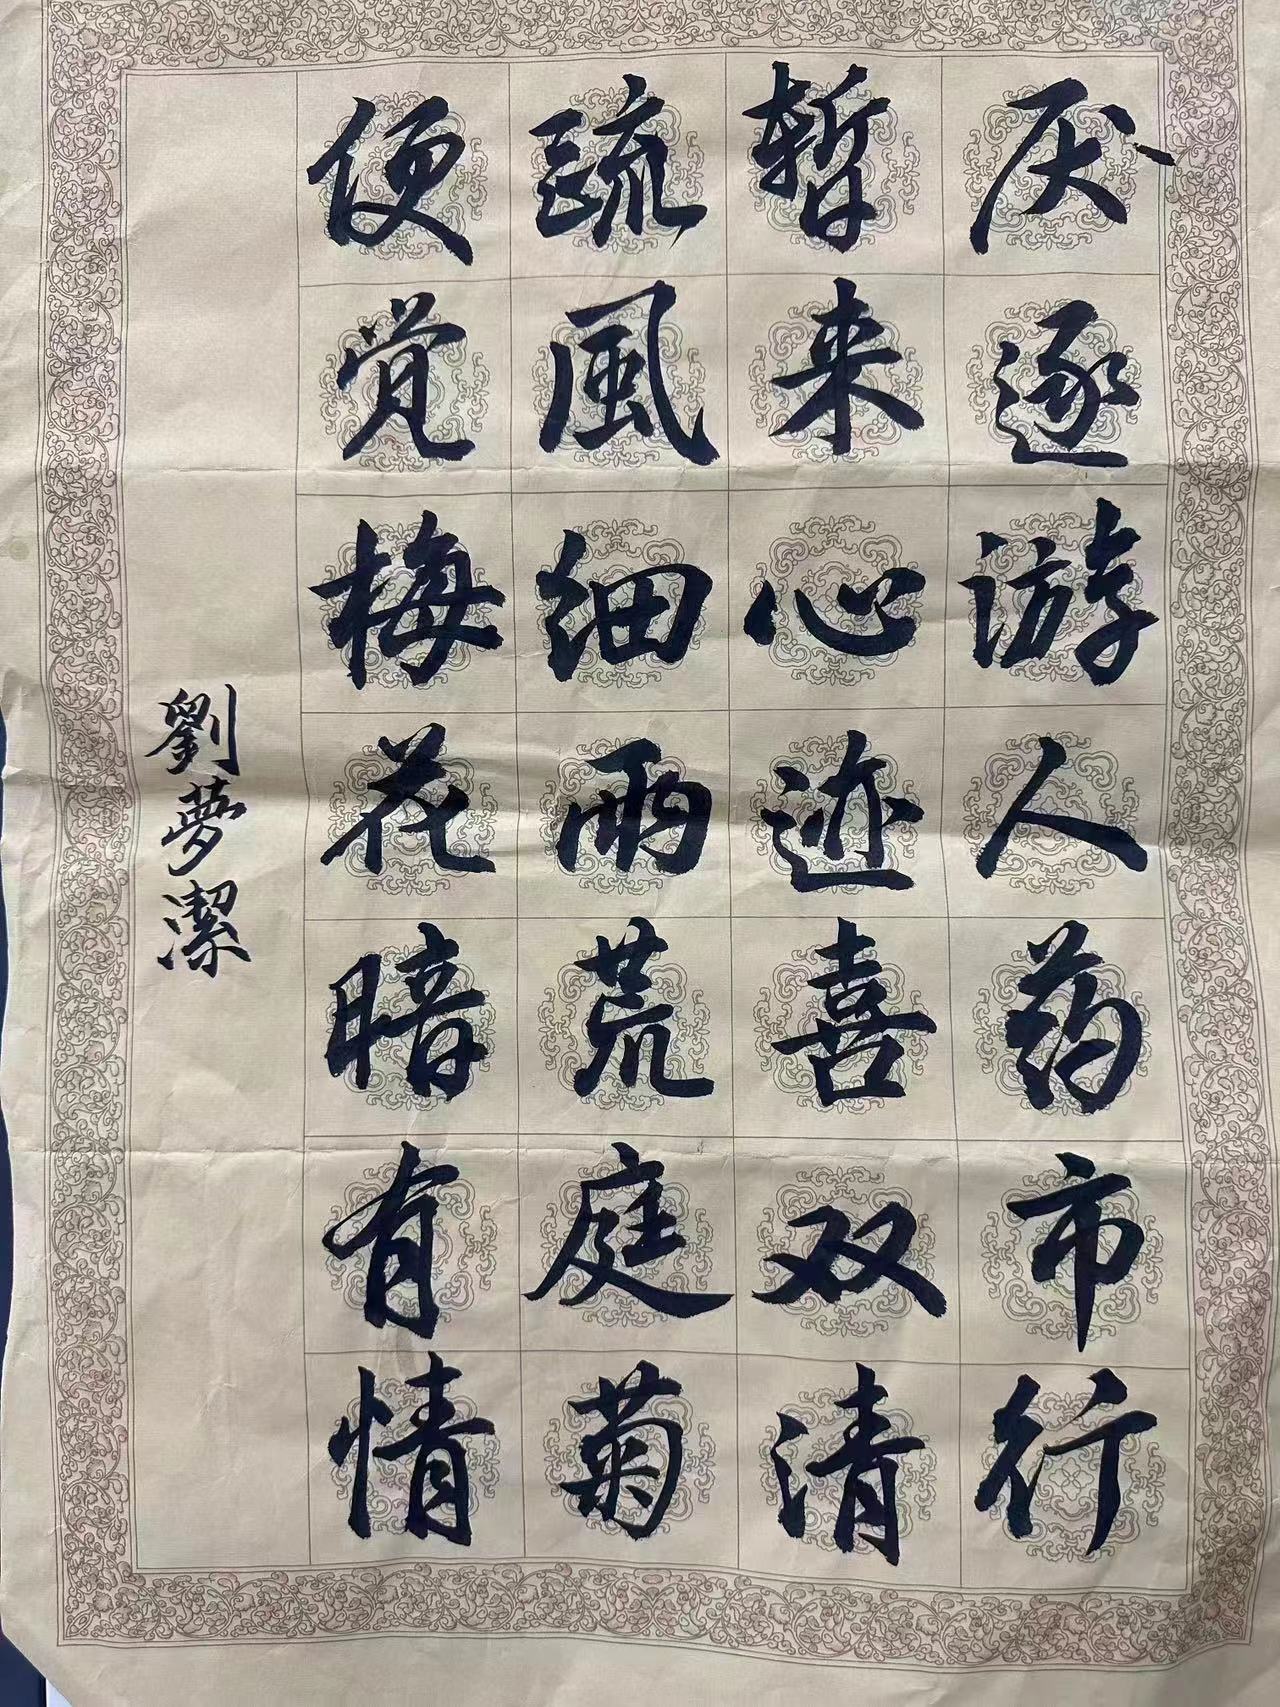 厌逐游人药市行
暂来心迹喜双清
疏風细雨荒庭菊
便觉梅花暗有情
劉夢潔